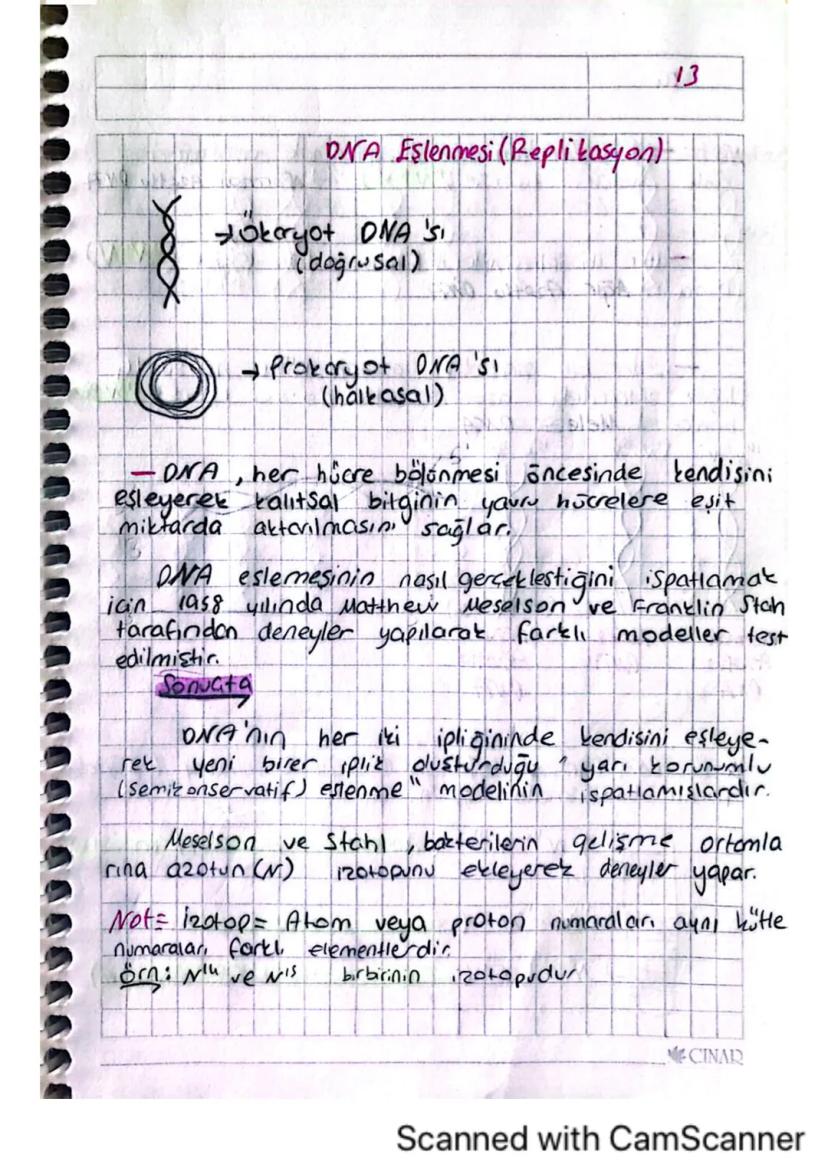 13
DNA Eşlenmesi (Replikasyon)
→ Ökaryot DNA'sı
(doğrusal)
→ Prokaryot DNA'sı
(halkasal)
— DNA, her hücre bölünmesi öncesinde kendisini
eşleyerek kalıtsal bilginin yavru hücrelere eşit
miktarda aktarılmasını sağlar.
DNA eşlemesinin nasıl gerçekleştiğini ispatlamak
için 1958 yılında Matthew Meselson ve Franklin Stah
tarafından deneyler yapılarak farklı modeller test
edilmiştir.
Sonuçta
DNA'nın her iki ipliğininde kendisini eşleye-
rek yeni birer iplik oluşturduğu "yarı korunumlu
(semikonservatif) eşlenme" modelinin ispatlamışlardır.
Meselson ve Stahl, bakterilerin gelişme ortamla
rına azotun (N) izotopunu ekleyerek deneyler yapar.
Not= İzotop= Atom veya proton numaraları aynı kütle
numaraları farklı elementlerdir.
örn: N¹⁴ ve N¹⁵ birbirinin izotopudur
ÇINAR
Scanned with CamScanner